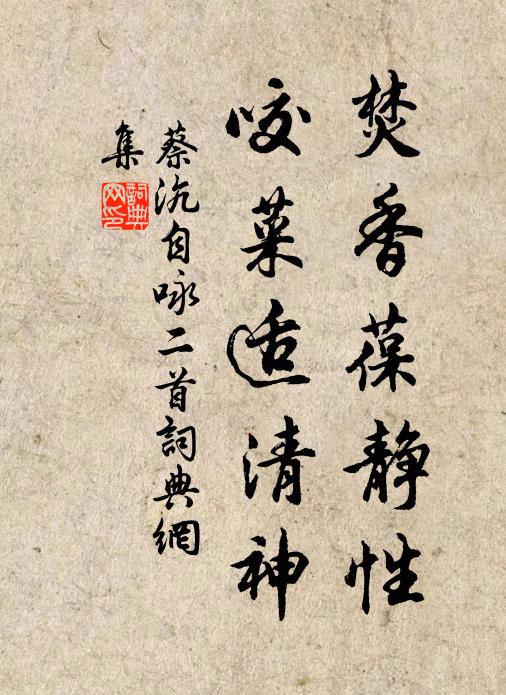 焚香葆静性
咬菜适清神
蔡沉自咏二首詞典網
集
詞典
网印